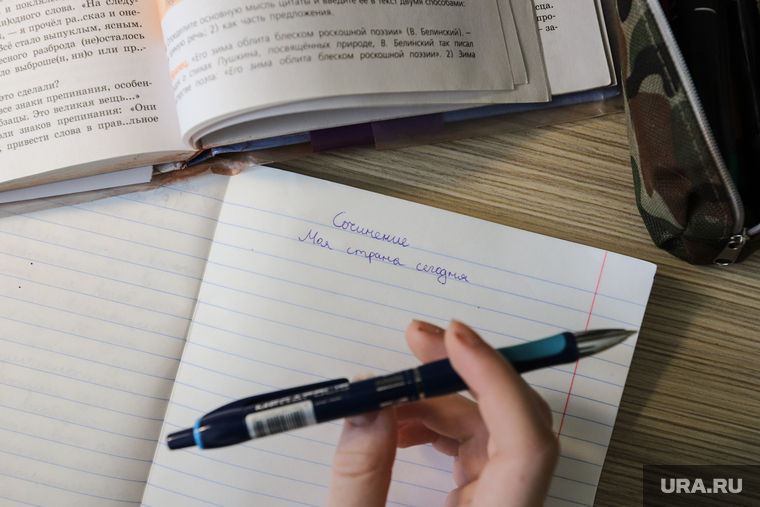 и поклялис
однажды. «На следу-
— я прочёл ра..сказ и оне-
Всё стало выпуклым, ясным.
есного разброда (не)осталось
ло выброше(н, нн)о или пр..-
это сделали?
се знаки препинания, особен-
бзацы. Это великая вещь...»
ли знаков препинания: «Они
привести слова в прав..льное
ределите основную мысль цитаты и введите её в текст двумя способами:
речь; 2) как часть предложения.
«Его зима облита блеском роскошной поэзии» (В. Белинский). –
о стихах Пушкина, посвящённых природе, В. Белинский так писал
стве поэта: «Его зима облита блеском роскошной поэзии». 2) Зима
Сочинение
Моя страна сегодня
URA.RU